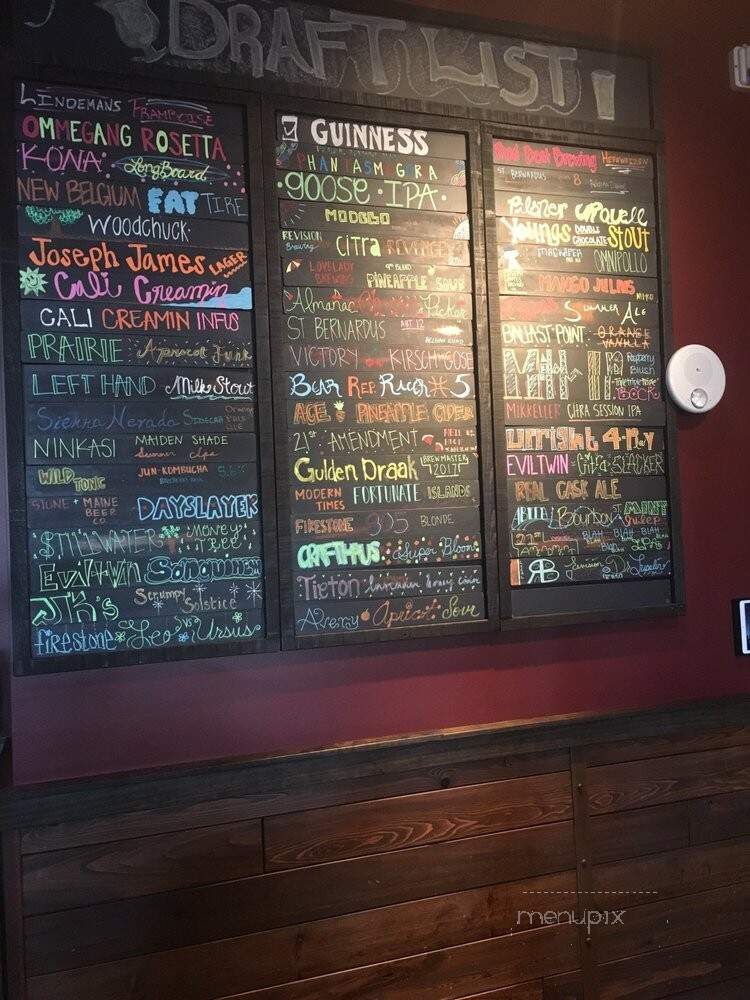 DRAFT LIST
LINDEMANS FRAMBOISE
OMMEGANG ROSETTA
KONA LongBoard
NEW BELGIUM FAT TIRE
WOODCHUCK
Joseph James LAGER
Cali Creamin
CALI CREAMIN INFUS
PRAIRIE Apricot Funk
LEFT HAND Milk Stout
Sierra Nevada SIDECAR Orange PALE ALE
NINKASI MAIDEN SHADE Summer Ipa
WILD TONIC JUN-KOMBUCHA 5.6%
STONE + MAINE BEER CO DAYSLAYER
STILLWATER MONEY TREE
Evil twin
JK's Scrumpy Solstice
firestone Leo vs Ursus
GUINNESS
PHANTASMAGORA
GOOSE IPA
MODELO
REVISION Brewing Citra REVENGE
LOVELADY BREWING 9th ISLAND PINEAPPLE SOUR
Almanac
ST BERNARDUS ABT 12
VICTORY KIRSCH GOSE
Bear Rep. RIVER 5
ACE PINEAPPLE CIDER
21st AMENDMENT
Gulden Draak BREWMASTER 2017
MODERN TIMES FORTUNATE ISLANDS
FIRESTONE 805 BLONDE
CRAFTHAUS Super Bloom
Tieton Lavender Honey
Avery Apricot Sour
Brewing
ST. BERNARDUS 8
Pilsner URQUELL
Youngs DOUBLE CHOCOLATE STOUT
OMNIPOLLO
MANGO JULIUS
Summer Ale
BALLAST POINT ORANGE VANILLA
Raspberry Blush
BOCK
MIKKELLER CITRA SESSION IPA
UPRIGHT 4-PLAY
EVILTWIN Citra SLACKER
REAL CASK ALE
Bourbon MINT Julep
21st BLAH BLAH BLAH IPA
Revision Dr. Lupulin
menupix